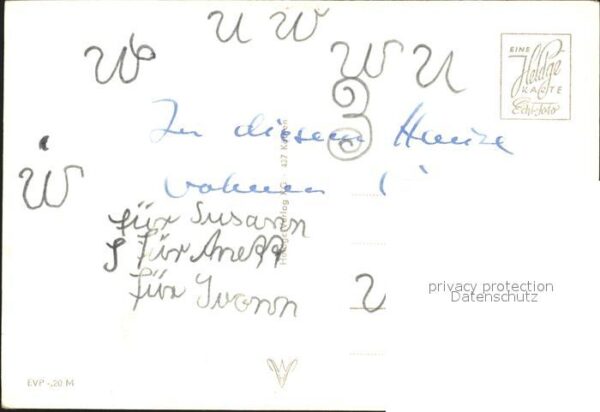 U W
W W U
W
EINE
Heldge
KARTE
Echt-Foto
In diesem Hause
wohnen
für Susann
für Anett
für Ivonn
U
privacy protection
Datenschutz
EVP -.20 M